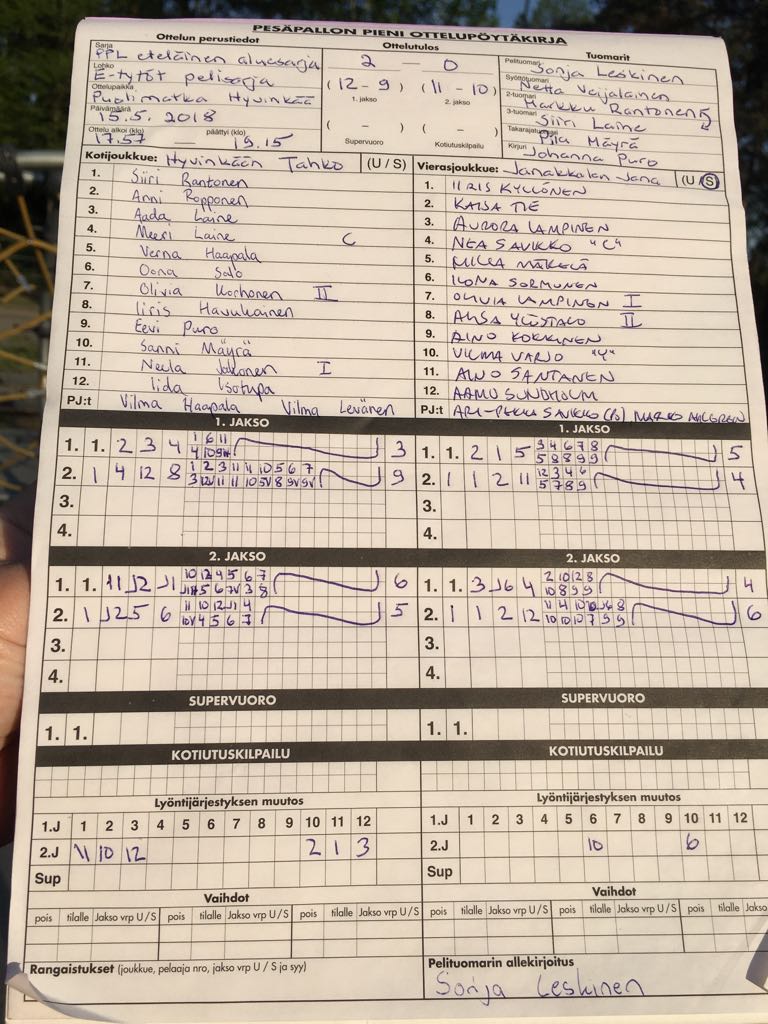 PESÄPALLON PIENI OTTELUPÖYTÄKIRJA
Ottelun perustiedot
Sarja
PPL eteläinen aluesarja
Lohko
E-tytöt pelisarja
Ottelupaikka
Puolimatka Hyvinkää
Päivämäärä
15.5. 2018
Ottelu alkoi (klo) 17.57 päättyi (klo) 19.15
Ottelutulos
2 — 0
(12 - 9) (11 - 10)
1. jakso 2. jakso
( - ) ( - )
Supervuoro Kotiutuskilpailu
Tuomarit
Pelituomari Sonja Leskinen
Syöttötuomari Netta Veijalainen
2-tuomari Markku Rantonen
3-tuomari Siiri Laine
Takarajatuomari Piia Mäyrä
Kirjuri Johanna Puro
Kotijoukkue: Hyvinkään Tahko (U / S)
1. Siiri Rantonen
2. Anni Ropponen
3. Aada Laine
4. Meeri Laine C
5. Verna Haapala
6. Oona Salo
7. Olivia Korhonen II
8. Iiris Havukainen
9. Eevi Puro
10. Sanni Mäyrä
11. Neela Jokonen I
12. Iida Isotupa
PJ:t Vilma Haapala Vilma Levänen
Vierasjoukkue: Janakkalan Jana (U / S)
1. IIRIS KYLLÖNEN
2. KAISA TIE
3. AURORA LAMPINEN
4. NEA SAVIKKO "C"
5. MILLA MÄKELÄ
6. ILONA SORMUNEN
7. OLIVIA LAMPINEN I
8. AHSA YLÖSTALO II
9. AINO KOKKINEN
10. VILMA VARJO "Y"
11. AINO SANTANEN
12. AAMU SUNDHOLM
PJ:t ARI-PEKKA SAVIKKO (B) MARKO AHLGREN
1. JAKSO
1. 1. 2 3 4 1 6 11 3
2. 1 4 12 8 1 2 3 11 11 10 5 6 7 9
3.
4.
1. JAKSO
1. 1. 2 1 5 3 4 6 7 8 5
5 8 8 9 9
2. 1 1 2 11 12 3 4 6 4
5 7 8 9
3.
4.
2. JAKSO
1. 1. 11 12 11 10 12 4 5 6 7 6
2. 1 12 5 6 11 10 12 11 4 5
10V 4 5 6 7
3.
4.
2. JAKSO
1. 1. 3 16 4 2 10 2 8 4
10 8 9 9
2. 1 1 2 12 11 4 10 10 16 8 6
10 10 10 7 9 9
3.
4.
SUPERVUORO
1. 1.
SUPERVUORO
1. 1.
KOTIUTUSKILPAILU
KOTIUTUSKILPAILU
Lyöntijärjestyksen muutos
1.J 1 2 3 4 5 6 7 8 9 10 11 12
2.J 11 10 12 2 1 3
Sup
Lyöntijärjestyksen muutos
1.J 1 2 3 4 5 6 7 8 9 10 11 12
2.J 10 6
Sup
Vaihdot
pois tilalle Jakso vrp U / S pois tilalle Jakso vrp U / S pois tilalle Jakso vrp U / S
Vaihdot
pois tilalle Jakso vrp U / S pois tilalle Jakso vrp U / S pois tilalle Jakso
Rangaistukset (joukkue, pelaaja nro, jakso vrp U / S ja syy)
Pelituomarin allekirjoitus
Sonja Leskinen